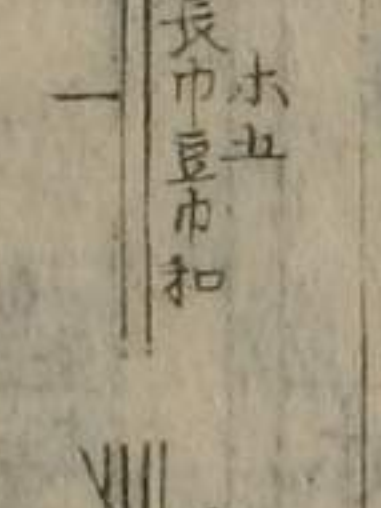 木五
長巾豆巾和